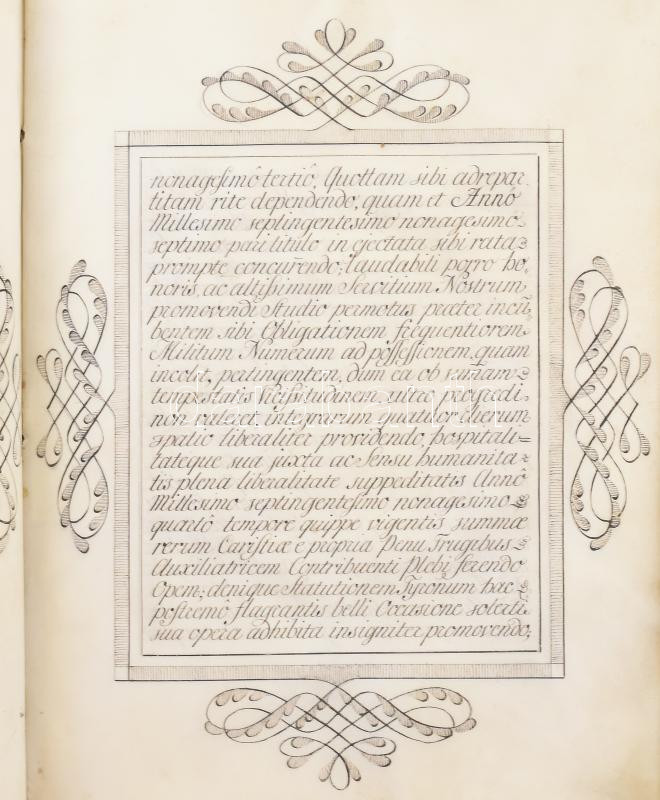 nonagesimô tertiô, Quottam sibi adrepar-
titam rite dependendo, quam et Annô
Millesimo septingentesimo nonagesimo
septimo pari titulo in ejectata sibi rata
prompte concurrendo; laudabili porro ho,
noris, ac altissimum Servitium Nostrum
promovendi Studio permotus præter incũ
bentem sibi Obligationem frequentiorem
Militum Numerum ad possessionem, quam
incolit, pertingentem, dum ea ob variam
tempestatis vicissitudinem, ultro progredi
non valeret, integrarum quatuor dierum
spatio liberaliter providendo, hospitali=
tateque sua juxta ac Sensu humanita
tis plena liberalitate suppeditatis Annô
Millesimo septingentesimo nonagesimo
quartô tempore quippe vigentis summæ
rerum Caristiæ e propria Penu Frugibus
Auxiliatricem Contribuenti Plebi ferendo
Opem; denique Statutionem Tyronum hac
postremo flagrantis belli Occasione solerti
sua opera adhibita insigniter promovendo;